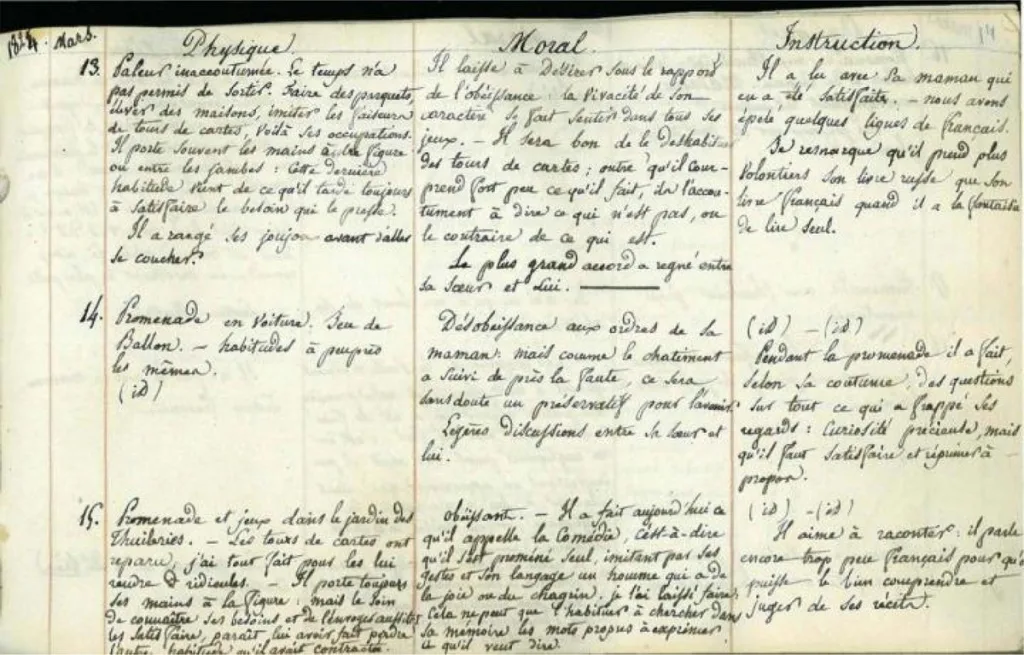 1824. Mars.
Physique.
13. Paleur inaccoutumée. Le temps n'a
pas permis de sortir. Faire des paquets,
élever des maisons, imiter les faiseurs
de tours de cartes, voilà ses occupations.
Il porte souvent les mains à la figure
ou entre les jambes : cette dernière
habitude vient de ce qu'il tarde toujours
à satisfaire le besoin qui le presse.
Il a rangé ses joujoux avant d'aller
se coucher.
14. Promenade en voiture. Jeu de
Ballon. — habitudes à peuprès
les mêmes.
(id)
15. Promenade et jeux dans le jardin des
Thuileries. — Les tours de cartes ont
reparu, j'ai tout fait pour les lui
rendre ridicules. — Il porte toujours
ses mains à la figure : mais le soin
de connaître ses besoins et de l'envoyer aussitôt
les satisfaire, paraît lui avoir fait perdre
l'autre habitude qu'il avait contractée.
Moral.
Il laisse à désirer sous le rapport
de l'obéissance : la vivacité de son
caractère se fait sentir dans tous ses
jeux. — Il sera bon de le deshabituer
des tours de cartes ; outre qu'il com-
prend fort peu ce qu'il fait, on l'accou-
tument à dire ce qui n'est pas, ou
le contraire de ce qui est.
Le plus grand accord a regné entre
sa sœur et lui.
Désobéissance aux ordres de sa
maman : mais comme le chatiment
a suivi de près la faute, ce sera
sans doute un préservatif pour l'avenir.
Légères discussions entre sa sœur et
lui.
obéissant. — Il a fait aujourd'hui ce
qu'il appelle la Comédie, c'est-à-dire
qu'il s'est promené seul, imitant par ses
gestes et son langage un homme qui a de
la joie ou du chagrin. je l'ai laissé faire ;
Cela ne peut que l'habituer à chercher dans
sa mémoire les mots propres à exprimer
ce qu'il veut dire.
Instruction.
14
Il a lu avec sa maman qui
en a été satisfaite. — nous avons
épelé quelques lignes de français.
Je remarque qu'il prend plus
volontiers son livre russe que son
livre français quand il a la fantaisie
de lire seul.
(id) — (id)
Pendant la promenade il a fait,
selon sa coutume, des questions
sur tout ce qui a frappé ses
regards : Curiosité précieuse, mais
qu'il faut satisfaire et réprimer à
propos.
(id) — (id)
Il aime à raconter : il parle
encore trop peu français pour qu'on
puisse le bien comprendre et
juger de ses récits.